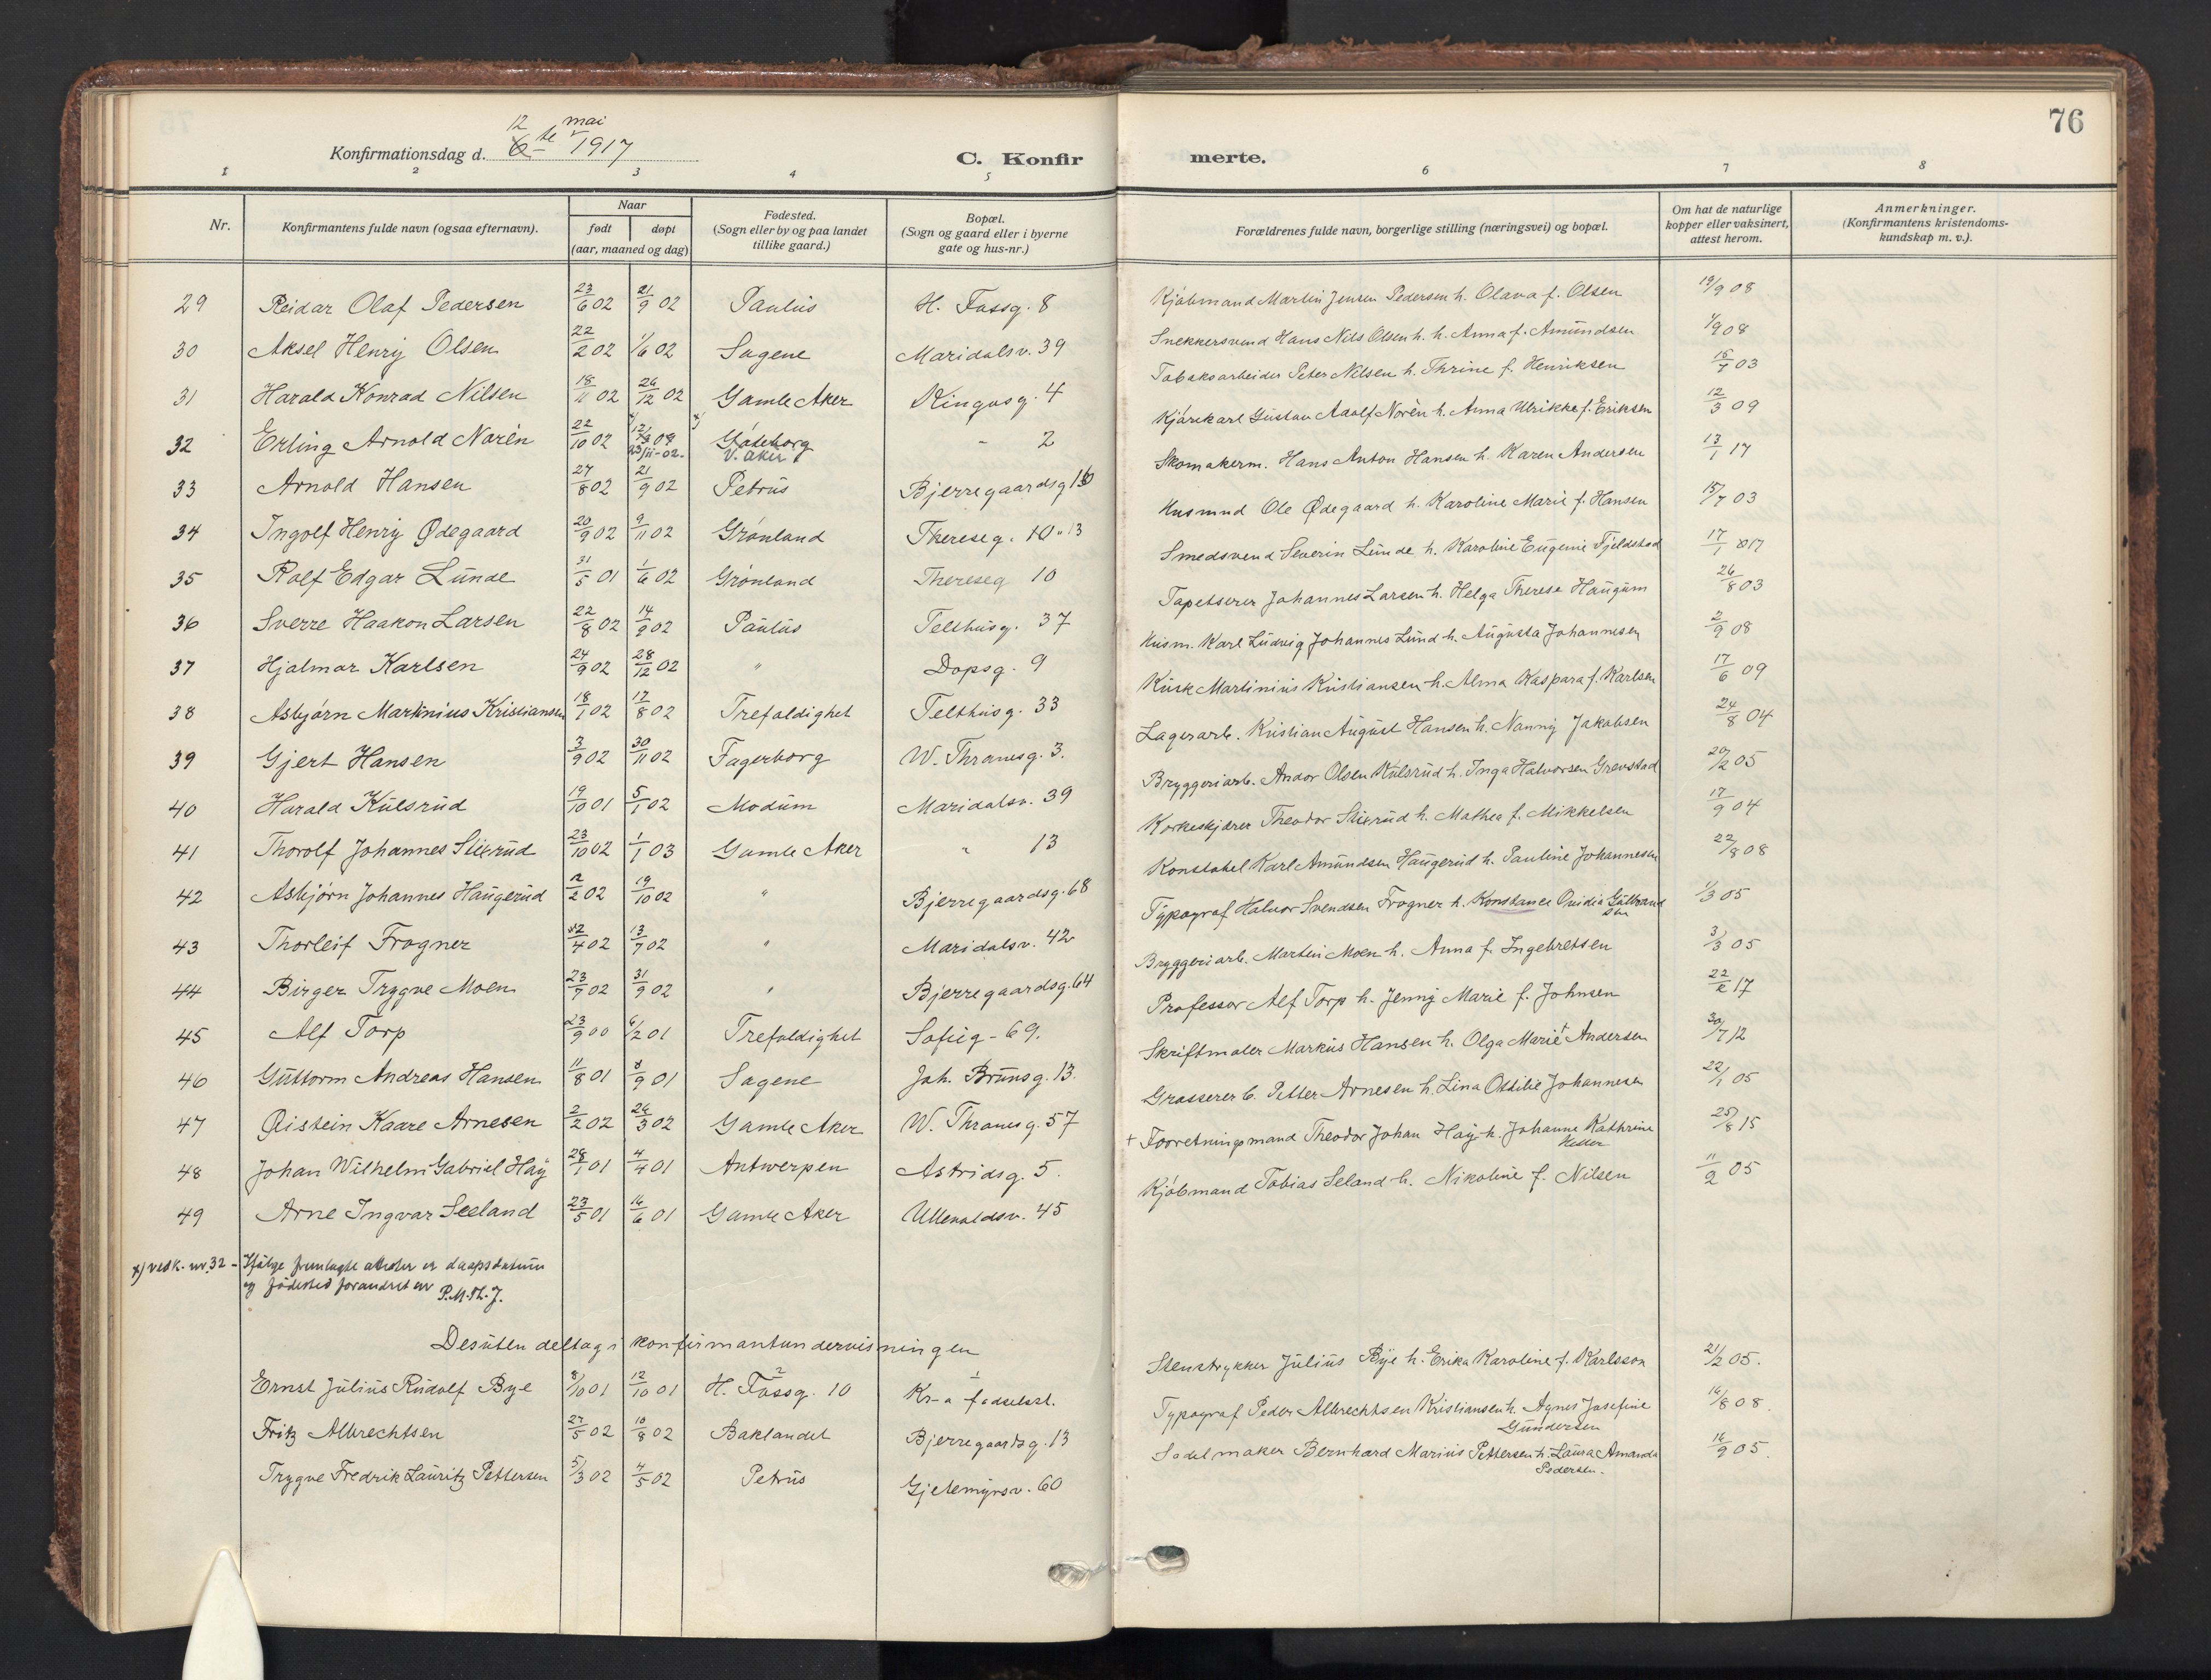 76
12 mai
Konfirmationsdag d. 6te 1917
C. Konfirmerte.
1 2 3 4 5 6 7 8
Nr.
Konfirmantens fulde navn (ogsaa efternavn).
Naar
født døpt
(aar, maaned og dag)
Fødested.
(Sogn eller by og paa landet
tillike gaard.)
Bopæl.
(Sogn og gaard eller i byerne
gate og hus-nr.)
Forældrenes fulde navn, borgerlige stilling (næringsvei) og bopæl.
Om hat de naturlige
kopper eller vaksinert,
attest herom.
Anmerkninger.
(Konfirmantens kristendoms-
kundskap m. v.).
29 Reidar Olaf Pedersen 23/6 02 21/9 02 Paulus H. Fossg. 8 Kjøbmand Martin Jensen Pedersen h. Olava f. Olsen 19/9 08
30 Aksel Henry Olsen 22/2 02 1/6 02 Sagene Maridalsv. 39 Snekkersvend Hans Nils Olsen h. h. Anna f. Amundsen 1/9 08
31 Harald Konrad Nilsen 18/11 02 26/12 02 Gamle Aker Kingosg. 4 Tobaksarbeider Peter Nilsen h. Thrine f. Henriksen 15/7 03
32 Erling Arnold Norèn 22/10 02 23/11-02. Göteborg V. Aker x) " 2 Kjørekarl Gustav Adolf Norèn h. Anna Ulrikke f. Eriksen 12/3 09
33 Arnold Hansen 27/8 02 21/9 02 Petrus Bjerregaardsg Skomakerm. Hans Anton Hansen h. Karen Andersen 13/1 17
34 Ingolf Henry Ødegaard 20/9 02 9/11 02 Grønland Thereseg. 10 " 13 Husmnd Ole Ødegaard h. Karoline Marie f. Hansen 15/7 03
35 Rolf Edgar Lunde 31/5 01 1/6 02 Grønland Thereseg 10 Smedsvend Severin Lunde h. Karoline Eugenie Fjeldstad 17/1 17
36 Sverre Haakon Larsen 22/8 02 14/9 02 Paulus Telthusg. 37 Tapetserer Johannes Larsen h. Helga Therese Haugum 26/8 03
37 Hjalmar Karlsen 24/9 02 28/12 02 " Dopsg. 9 Husm. Karl Ludvig Johannes Lund h. Augusta Johannesen 2/9 08
38 Asbjørn Martinius Kristiansen 18/1 02 17/8 02 Trefoldighet Telthusg. 33 Kusk Martinius Kristiansen h. Alma Kaspara f. Karlsen 17/6 09
39 Gjert Hansen 3/9 02 30/11 02 Fagerborg W. Thranesg. 3. Lagerarb. Kristian August Hansen h. Nanny Jakobsen 24/8 04
40 Harald Kulsrud 19/10 01 5/1 02 Modum Maridalsv. 39 Bryggeriarb. Andor Olsen Kulsrud h. Inga Halvorsen Grevstad 20/2 05
41 Thorolf Johannes Slixrud 23/10 02 1/1 03 Gamle Aker " 13 Korkeskjærer Theodor Slixrud h. Mathea f. Mikkelsen 17/9 04
42 Asbjørn Johannes Haugerud 2/2 02 19/10 02 " Bjerregaardsg. 68 Konstabel Karl Amundsen Haugerud h. Pauline Johannesen 22/8 08
43 Thorleif Frogner /4 02 13/7 02 " Maridalsv. 42 Typograf Halvor Svendsen Frogner h. Konstance Ovidia Gulbrandsen 1/3 05
44 Birger Trygve Moen 23/7 02 31/9 02 " Bjerregaardsg. 64 Bryggeriarb. Martin Moen h. Anna f. Ingebretsen 3/3 05
45 Alf Torp 23/9 00 6/2 01 Trefoldighet Sofieg - 69. Professor Alf Torp h. Jenny Marie f. Johnsen 22/2 17
46 Guttorm Andreas Hansen 11/8 01 8/9 01 Sagene Joh. Brunsg. 13. Skriftmaler Markus Hansen h. Olga Marie + Andersen 30/7 12
47 Øistein Kaare Arnesen 2/2 02 26/3 02 Gamle Aker W. Thranesg. 57 Grosserer C. Petter Arnesen h. Lina Ottilie Johannesen 22/1 05
48 Johan Wilhelm Gabriel Haÿ 28/1 01 4/4 01 Antwerpen Astridsg. 5. + Forretningsmand Theodor Johan Haÿ h. Johanne Kathrine 25/8 15
49 Arne Ingvar Seeland 23/5 01 16/6 01 Gamle Aker Ullevoldsv. 45 Kjøbmand Tobias Seland h. Nikoline f. Nilsen 11/2 05
x) ved k. nr. 32 - Ifølge fremlagte attester er daapsdatum
og fødested forandret av P.M.Th.J.
Desuten deltag i konfirmantundervisningen
Ernst Julius Rudolf Bye 8/10 01 12/10 01 H. Fossg. 10 Kr-a fødselsst. Stenstrykker Julius Bye h. Erika Karoline f. Karlsson 21/2 05.
Fritz Albrechtsen 27/5 02 10/8 02 Baklandet Bjerregaardsg. 13 Typograf Peder Albrechtsen Kristiansen h. Agnes Josefine Gundersen 16/8 08.
Trygve Fredrik Lauritz Pettersen 5/3 02 4/5 02 Petrus Gjetemyrsv. 60 Sadelmaker Bernhard Marius Pettersen h. Laura Amanda Pedersen. 16/9 05.